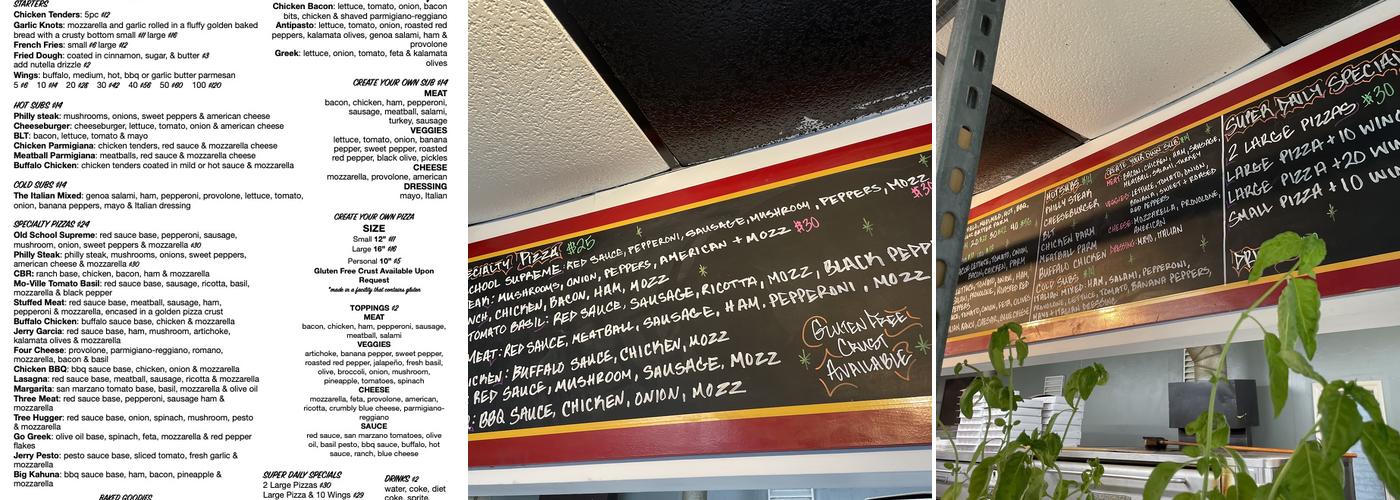 STARTERS
Chicken Tenders: 5pc $12
Garlic Knots: mozzarella and garlic rolled in a fluffy golden baked
bread with a crusty bottom small $11 large $16
French Fries: small $6 large $12
Fried Dough: coated in cinnamon, sugar, & butter $3
add nutella drizzle $2
Wings: buffalo, medium, hot, bbq or garlic butter parmesan
HOT SUBS $14
Philly steak: mushrooms, onions, sweet peppers & american cheese
Cheeseburger: cheeseburger, lettuce, tomato, onion & american cheese
BLT: bacon, lettuce, tomato & mayo
Chicken Parmigiana: chicken tenders, red sauce & mozzarella cheese
Meatball Parmigiana: meatballs, red sauce & mozzarella cheese
Buffalo Chicken: chicken tenders coated in mild or hot sauce & mozzarella
COLD SUBS $14
The Italian Mixed: genoa salami, ham, pepperoni, provolone, lettuce, tomato,
onion, banana peppers, mayo & Italian dressing
SPECIALTY PIZZAS $24
Old School Supreme: red sauce base, pepperoni, sausage,
mushroom, onion, sweet peppers & mozzarella $30
Philly Steak: philly steak, mushrooms, onions, sweet peppers,
american cheese & mozzarella $30
CBR: ranch base, chicken, bacon, ham & mozzarella
Mo-Ville Tomato Basil: red sauce base, sausage, ricotta, basil,
mozzarella & black pepper
Stuffed Meat: red sauce base, meatball, sausage, ham,
pepperoni & mozzarella, encased in a golden pizza crust
Buffalo Chicken: buffalo sauce base, chicken & mozzarella
Jerry Garcia: red sauce base, ham, mushroom, artichoke,
kalamata olives & mozzarella
Four Cheese: provolone, parmigiano-reggiano, romano,
mozzarella, bacon & basil
Chicken BBQ: bbq sauce base, chicken, onion & mozzarella
Lasagna: red sauce base, meatball, sausage, ricotta & mozzarella
Margarita: san marzano tomato base, basil, mozzarella & olive oil
Three Meat: red sauce base, pepperoni, sausage ham &
mozzarella
Tree Hugger: red sauce base, onion, spinach, mushroom, pesto
& mozzarella
Go Greek: olive oil base, spinach, feta, mozzarella & red pepper
flakes
Jerry Pesto: pesto sauce base, sliced tomato, fresh garlic &
mozzarella
Big Kahuna: bbq sauce base, ham, bacon, pineapple &
mozzarella
BAKED GOODIES
Chicken Bacon: lettuce, tomato, onion, bacon
bits, chicken & shaved parmigiano-reggiano
Antipasto: lettuce, tomato, onion, roasted red
peppers, kalamata olives, genoa salami, ham &
provolone
Greek: lettuce, onion, tomato, feta & kalamata
olives
CREATE YOUR OWN SUB $14
MEAT
bacon, chicken, ham, pepperoni,
sausage, meatball, salami,
turkey, sausage
VEGGIES
lettuce, tomato, onion, banana
pepper, sweet pepper, roasted
red pepper, black olive, pickles
CHEESE
mozzarella, provolone, american
DRESSING
mayo, Italian
CREATE YOUR OWN PIZZA
SIZE
Small 12" $11
Large 16" $16
Personal 10" $5
Gluten Free Crust Available Upon
Request
*made in a facility that contains gluten
TOPPINGS $2
MEAT
bacon, chicken, ham, pepperoni, sausage,
meatball, salami
VEGGIES
artichoke, banana pepper, sweet pepper,
roasted red pepper, jalapeño, fresh basil,
olive, broccoli, onion, mushroom,
pineapple, tomatoes, spinach
CHEESE
mozzarella, feta, provolone, american,
ricotta, crumbly blue cheese, parmigiano-
reggiano
SAUCE
red sauce, san marzano tomatoes, olive
oil, basil pesto, bbq sauce, buffalo, hot
sauce, ranch, blue cheese
SUPER DAILY SPECIALS
2 Large Pizzas $30
Large Pizza & 10 Wings $29
DRINKS $2
water, coke, diet
coke, sprite,
ECIALTY PIZZA $25
CHOOL SUPREME: RED SAUCE, PEPPERONI, SAUSAGE, MUSHROOM, PEPPERS, MOZZ $30
EAK: MUSHROOMS, ONION, PEPPERS, AMERICAN + MOZZ $30
NCH, CHICKEN, BACON, HAM, MOZZ
TOMATO BASIL: RED SAUCE, SAUSAGE, RICOTTA, MOZZ, BLACK PEPP
MEAT: RED SAUCE, MEATBALL, SAUSAGE, HAM, PEPPERONI, MOZZ
ICKEN: BUFFALO SAUCE, CHICKEN, MOZZ
RED SAUCE, MUSHROOM, SAUSAGE, MOZZ
: BBQ SAUCE, CHICKEN, ONION, MOZZ
GLUTEN FREE
CRUST
AVAILABLE
HOT SUBS $14
PHILLY STEAK
CHEESEBURGER
BLT
CHICKEN PARM
MEATBALL PARM
BUFFALO CHICKEN
COLD SUBS $14
ITALIAN MIXED: HAM, SALAMI, PEPPERONI,
PROVOLONE, LETTUCE, TOMATO, BANANA PEPPERS,
MAYO + ITALIAN DRESSING
CREATE YOUR OWN SUB $14
MEAT: BACON, CHICKEN, HAM, SAUSAGE,
MEATBALL, SALAMI, TURKEY
VEGGIES: LETTUCE, TOMATO, ONION,
BANANA, SWEET + ROASTED
RED PEPPERS
CHEESE: MOZZARELLA, PROVOLONE,
AMERICAN
DRESSING: MAYO, ITALIAN
SUPER DAILY SPECIAL
2 LARGE PIZZAS $30
LARGE PIZZA + 10 WIN
LARGE PIZZA + 20 WIN
SMALL PIZZA + 10 WIN